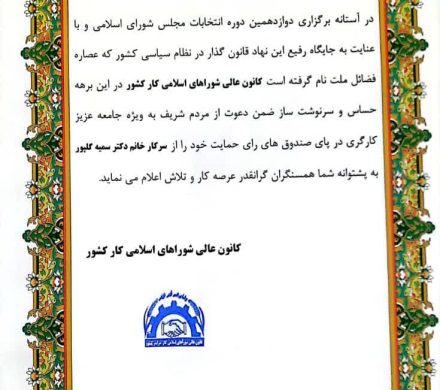 در آستانه برگزاری دوازدهمین دوره انتخابات مجلس شورای اسلامی و با
عنایت به جایگاه رفیع این نهاد قانون گذار در نظام سیاسی کشور که عصاره
فضائل ملت نام گرفته است کانون عالی شوراهای اسلامی کار کشور در این برهه
حساس و سرنوشت ساز ضمن دعوت از مردم شریف به ویژه جامعه عزیز
کارگری در پای صندوق های رای حمایت خود را از سرکار خانم دکتر سمیه گلپور
به پشتوانه شما همسنگران گرانقدر عرصه کار و تلاش اعلام می نماید.
کانون عالی شوراهای اسلامی کار کشور